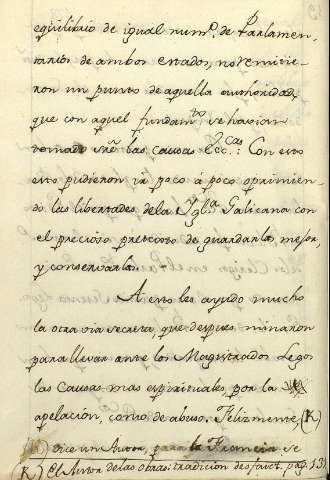 eqüilibrio de igual num.º de Parlamen-
tarios de ambos estados, no remitie-
ron un punto de aquella authoridad,
que con aquel fundam.to se havian
tomado s̃re las causas Ecc.cas: Con esto
esto pudieron ir poco á poco oprimien-
do las libertades de la Ygl.a Galicana con
el precioso pretexto de guardarlas mejor,
y conservarlas.
A esto les ayudo mucho
la otra via secreta, que despues minaron
para llevar ante los Magistrados Legos
las causas mas espirituales por la
apelacion, como de abuso. Felizmente, (K)
dice un Autor, para la Francia se
K) El Autor de las obras: tradicion des faict. pag. 131